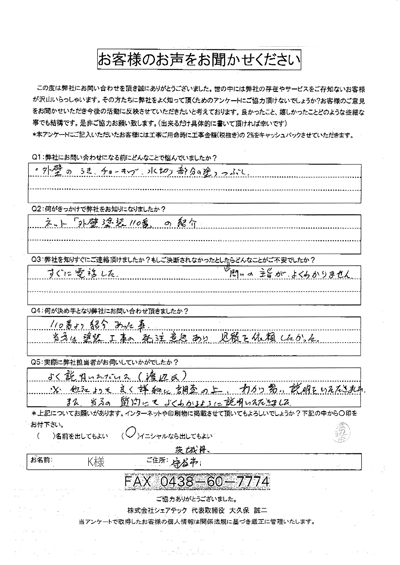 お客様のお声をお聞かせください
この度は弊社にお問い合わせを頂き誠にありがとうございました。世の中には弊社の存在やサービスをご存知ないお客様
が沢山いらっしゃいます。その方たちに弊社をよく知って頂くためのアンケートにご協力頂けないでしょうか?お客様のご意見
をお聞かせいただき今後の活動に反映させていただきたいと考えております。良かったこと、嬉しかったことなどの些細な
事でも結構です。是非ご協力お願い致します。(出来るだけ具体的に書いて頂ければ幸いです)
*本アンケートにご記入いただいたお客様には工事ご用命時に工事金額(税抜き)の2%をキャッシュバックさせていただきます。
Q1:弊社にお問い合わせになる前にどんなことで悩んでいましたか?
・外壁の チョーキング、水切り部分の塗りつぶし。
Q2:何がきっかけで弊社をお知りになりましたか?
ネット「外壁塗装110番」の紹介
Q3:弊社を知りすぐにご連絡頂けましたか?もしご決断されなかったとしたらどんなことがご不安でしたか?
すぐに電話した。 問いの主旨がよくわかりません
Q4:何が決め手となり弊社にお問い合わせ頂きましたか?
110番より紹介あった事。
当方は塗装工事の 見積を依頼したかった。
Q5:実際に弊社担当者がお伺いしていかがでしたか?
よく説明いただいた(渡辺氏)
※ 他社よりも良く詳細に調査の上、わかり易い説明をいただきました
また、当方の質問にもよくわかるように説明いただきました。
*上記についてお願いがあります。インターネットや印刷物に掲載させて頂いてもよろしいでしょうか?下記の中から○印を
お付け下さい。
( )名前を出してもよい (○)イニシャルなら出してもよい
茨城県
お名前: K様 ご住所: 守谷市
FAX 0438-60-7774
ご協力ありがとうございました。
株式会社シェアテック 代表取締役 大久保 誠二
当アンケートで取得したお客様の個人情報は関係法規に基づき厳正に管理いたします。